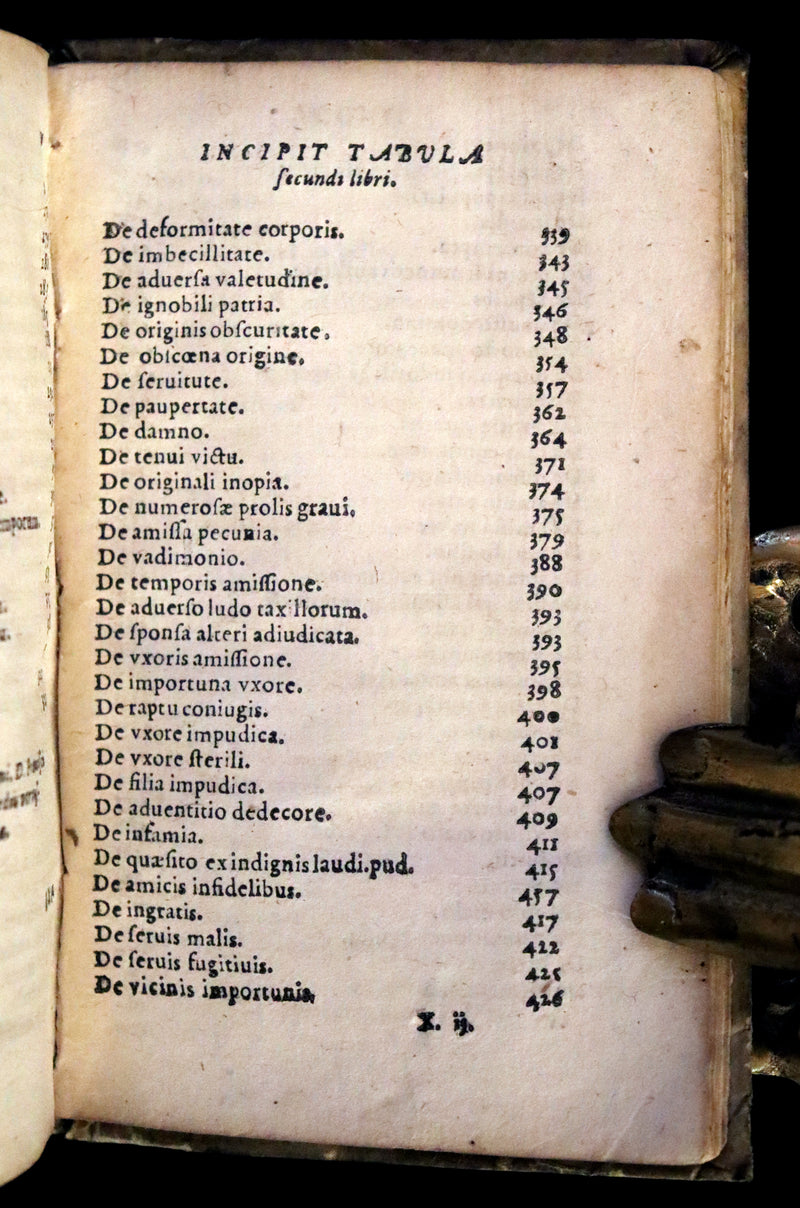 INCIPIT TABVLA
ſecundi libri.
De deformitate corporis. 339
De imbecillitate. 343
De aduerſa valetudine. 345
De ignobili patria. 346
De originis obſcuritate. 348
De obſcœna origine. 354
De ſeruitute. 357
De paupertate. 362
De damno. 364
De tenui victu. 371
De originali inopia. 374
De numeroſæ prolis graui. 375
De amiſſa pecunia. 379
De vadimonio. 388
De temporis amiſſione. 390
De aduerſo ludo taxillorum. 393
De ſponſa alteri adiudicata. 393
De vxoris amiſſione. 395
De importuna vxore. 398
De raptu coniugis. 400
De vxore impudica. 401
De vxore ſterili. 407
De filia impudica. 407
De aduentitio dedecore. 409
De infamia. 411
De quæſito ex indignis laudi.pud. 415
De amicis infidelibus. 457
De ingratis. 417
De ſeruis malis. 422
De ſeruis fugitiuis. 425
De vicinis importunis, 426
X. ij.